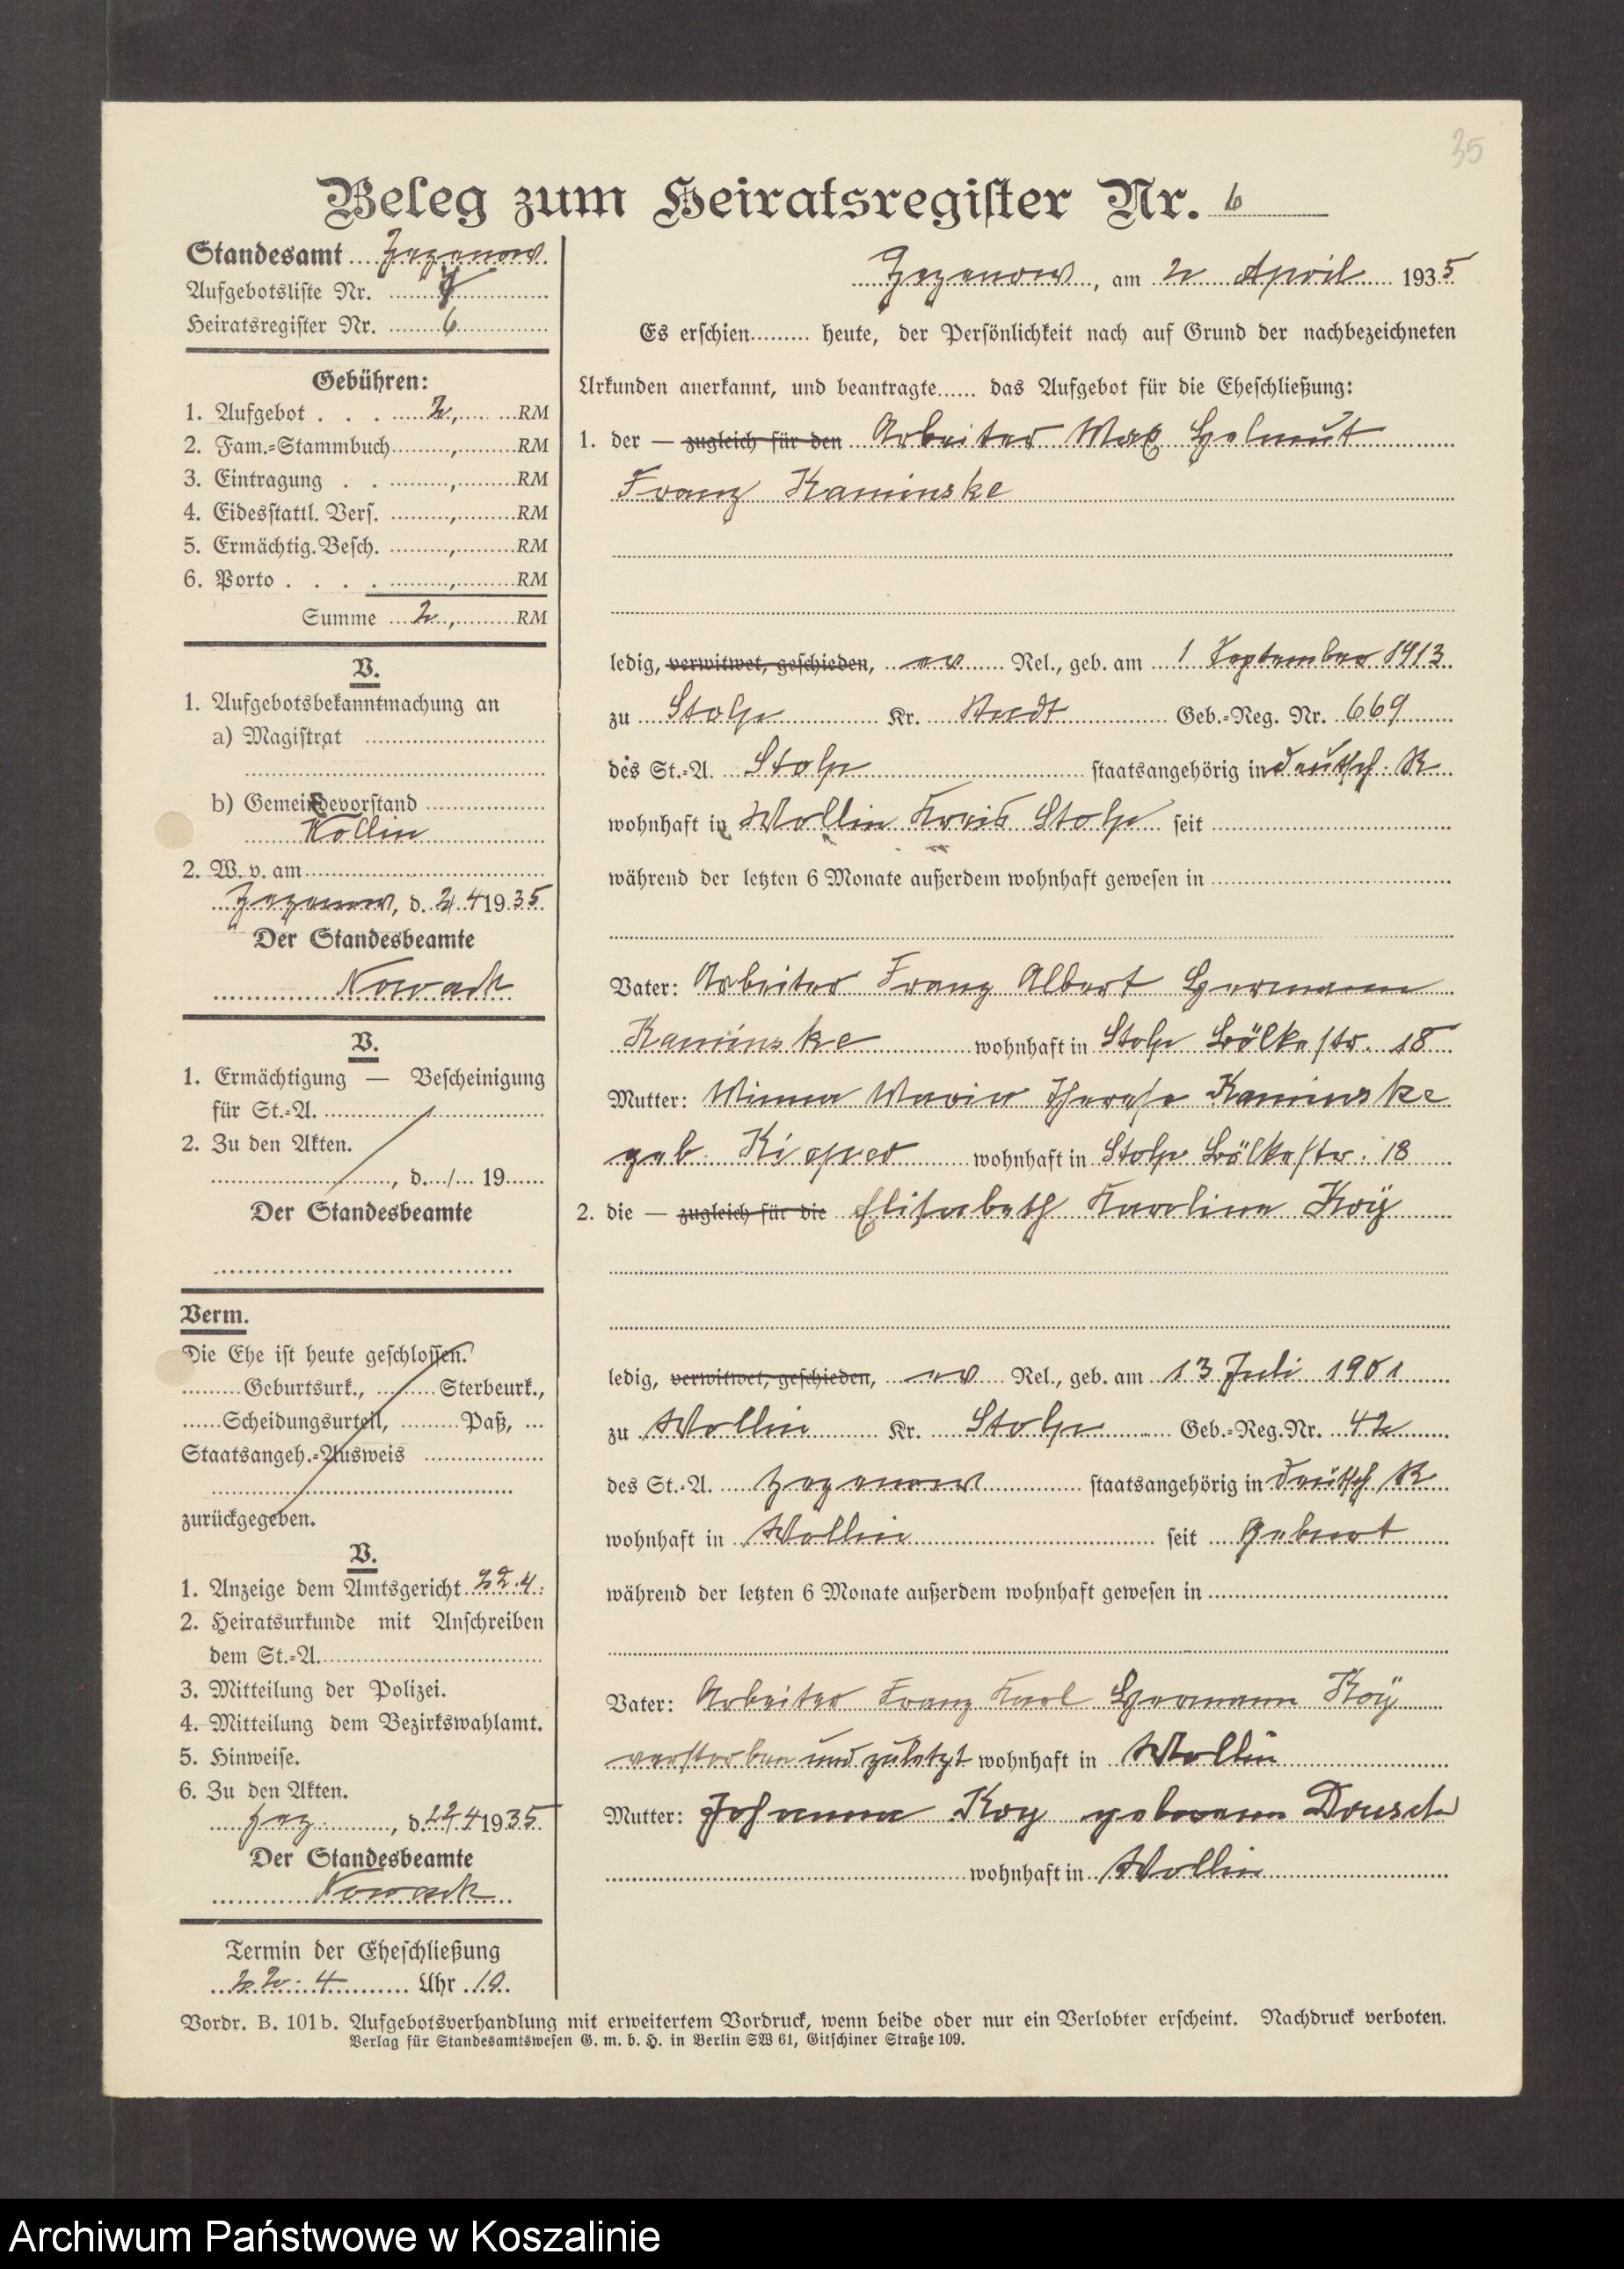 35
Beleg zum Heiratsregister Nr. 6
Standesamt Zezenow
Aufgebotsliste Nr.
Heiratsregister Nr. 6
Gebühren:
1. Aufgebot . . . 2, RM
2. Fam.-Stammbuch , RM
3. Eintragung . . , RM
4. Eidesstattl. Vers. , RM
5. Ermächtig. Besch. , RM
6. Porto . . . . , RM
Summe 2, RM
V.
1. Aufgebotsbekanntmachung an
a) Magistrat
b) Gemeindevorstand
Wollin
2. W. v. am
Zezenow, d. 2/4 1935
Der Standesbeamte
Nowack
V.
1. Ermächtigung — Bescheinigung
für St.-A.
2. Zu den Akten.
, d. / 19
Der Standesbeamte
Verm.
Die Ehe ist heute geschlossen.
Geburtsurk., Sterbeurk.,
Scheidungsurteil, Paß,
Staatsangeh.-Ausweis
zurückgegeben.
V.
1. Anzeige dem Amtsgericht 22.4.
2. Heiratsurkunde mit Anschreiben
dem St.-A.
3. Mitteilung der Polizei.
4. Mitteilung dem Bezirkswahlamt.
5. Hinweise.
6. Zu den Akten.
Zez., d. 22/4 1935
Der Standesbeamte
Nowack
Termin der Eheschließung
22. 4 Uhr 10.
Zezenow, am 2 April 1935
Es erschien heute, der Persönlichkeit nach auf Grund der nachbezeichneten
Urkunden anerkannt, und beantragte das Aufgebot für die Eheschließung:
1. der — zugleich für den Arbeiter Max Helmut
Franz Kaminske
ledig, verwitwet, geschieden, ev Rel., geb. am 1 September 1913
zu Stolp Kr. Stadt Geb.-Reg. Nr. 669
des St.-A. Stolp staatsangehörig in deutsch. R
wohnhaft in Wollin Kreis Stolp seit
während der letzten 6 Monate außerdem wohnhaft gewesen in
Vater: Arbeiter Franz Albert Hermann
Kaminske wohnhaft in Stolp Bölkestr. 18
Mutter: Minna Maria Therese Kaminske
geb. Kieper wohnhaft in Stolp Bölkestr. 18
2. die — zugleich für die Elisabeth Karoline Koÿ
ledig, verwitwet, geschieden, ev Rel., geb. am 13 Juli 1901
zu Wollin Kr. Stolp Geb.-Reg. Nr. 42
des St.-A. Zezenow staatsangehörig in deutsch R
wohnhaft in Wollin seit Geburt
während der letzten 6 Monate außerdem wohnhaft gewesen in
Vater: Arbeiter Franz Karl Hermann Koÿ
verstorben und zuletzt wohnhaft in Wollin
Mutter: Johanna Koy geborene Dousch
wohnhaft in Wollin
Vordr. B. 101b. Aufgebotsverhandlung mit erweitertem Vordruck, wenn beide oder nur ein Verlobter erscheint. Nachdruck verboten.
Verlag für Standesamtswesen G. m. b. H. in Berlin SW 61, Gitschiner Straße 109.
Archiwum Państwowe w Koszalinie